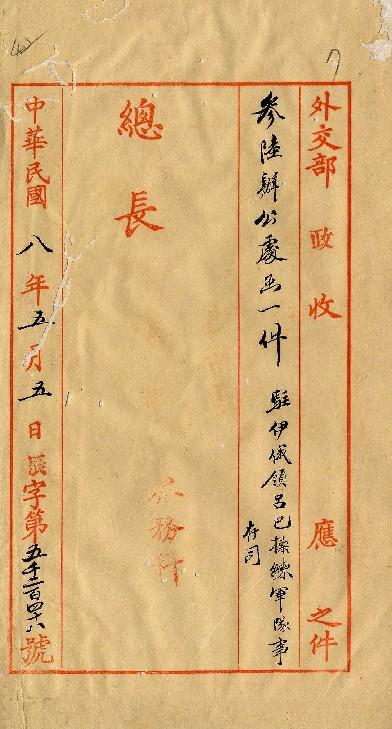 外交部 政 收 應 之件
參陸辦公處函一件 駐伊俄領已操練軍隊事
存司
總長
務司
中華民國八年五月五日 辰字第五千二百四十六號